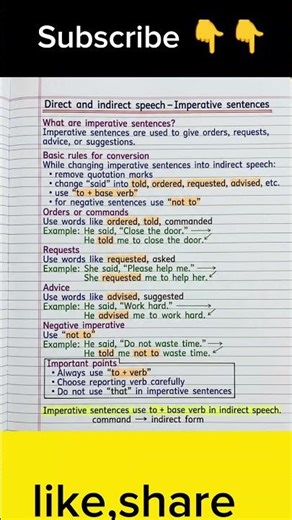 Subscribe 👇👇
Direct and indirect speech – Imperative sentences
What are imperative sentences?
Imperative sentences are used to give orders, requests,
advice, or suggestions.
Basic rules for conversion
While changing imperative sentences into indirect speech:
• remove quotation marks
• change “said” into told, ordered, requested, advised, etc.
• use “to + base verb”
• for negative sentences use “not to”
Orders or commands
Use words like ordered, told, commanded
Example: He said, “Close the door.” →
He told me to close the door.
Requests
Use words like requested, asked
Example: She said, “Please help me.” →
She requested me to help her.
Advice
Use words like advised, suggested
Example: He said, “Work hard.” →
He advised me to work hard.
Negative imperative
Use “not to”
Example: He said, “Do not waste time.” →
He told me not to waste time.
Important points
• Always use “to + verb”
• Choose reporting verb carefully
• Do not use “that” in imperative sentences
Imperative sentences use to + base verb in indirect speech.
command → indirect form
like,share